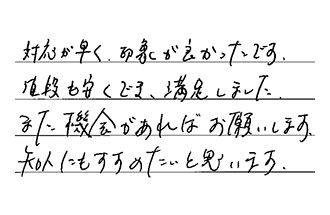 対応が早く、印象が良かったです。
値段も安くでき、満足しました。
また機会があればお願いします。
知人にもすすめたいと思います。